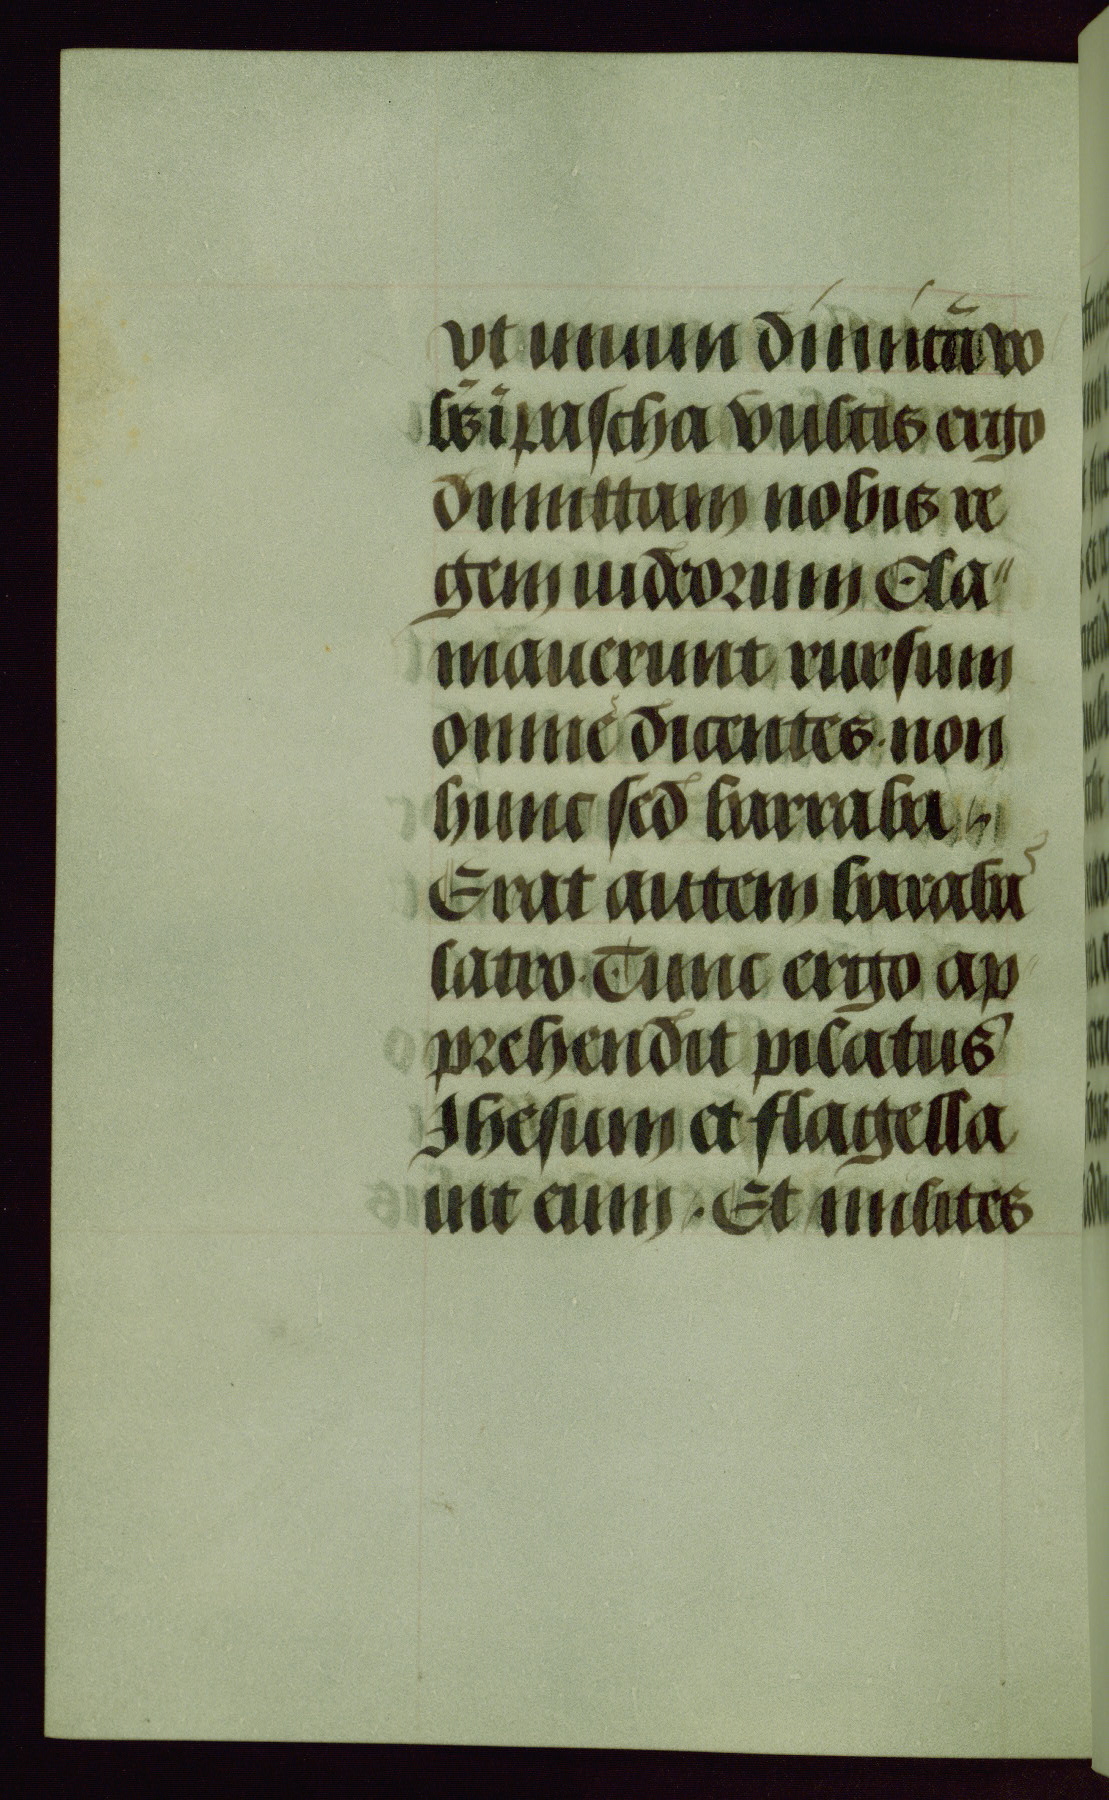 vt unum dimittā vo
bis ī pascha vultis ergo
dimittam vobis re
gem iudeorum Cla"
mauerunt rursum
omnes dicentes. non
hunc sed barraba
Erat autem baraba
latro. Tunc ergo ap
prehendit pilatus
Jhesum et flagella
uit eum. Et milites